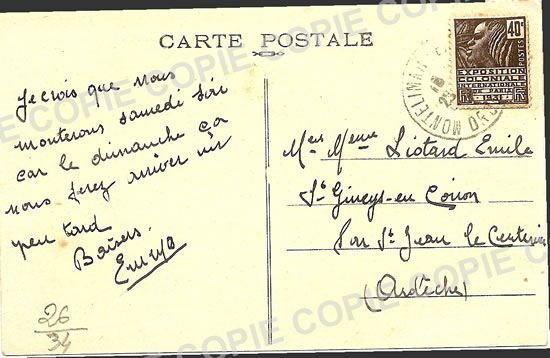 CARTE POSTALE
Je crois que nous
monterons samedi soir
car le dimanche ça
nous ferez arriver un
peu tard
Baisers
26
34
MONTELIMAR
DROME
40c
POSTES
EXPOSITION
COLONIALE
INTERNATIONALE
DE PARIS
1931
Mr et Mme Liotard Emile
St Gineys-en Coiron
Par St Jean le Centenier
(Ardèche)
COPIE COPIE COPIE COPIE